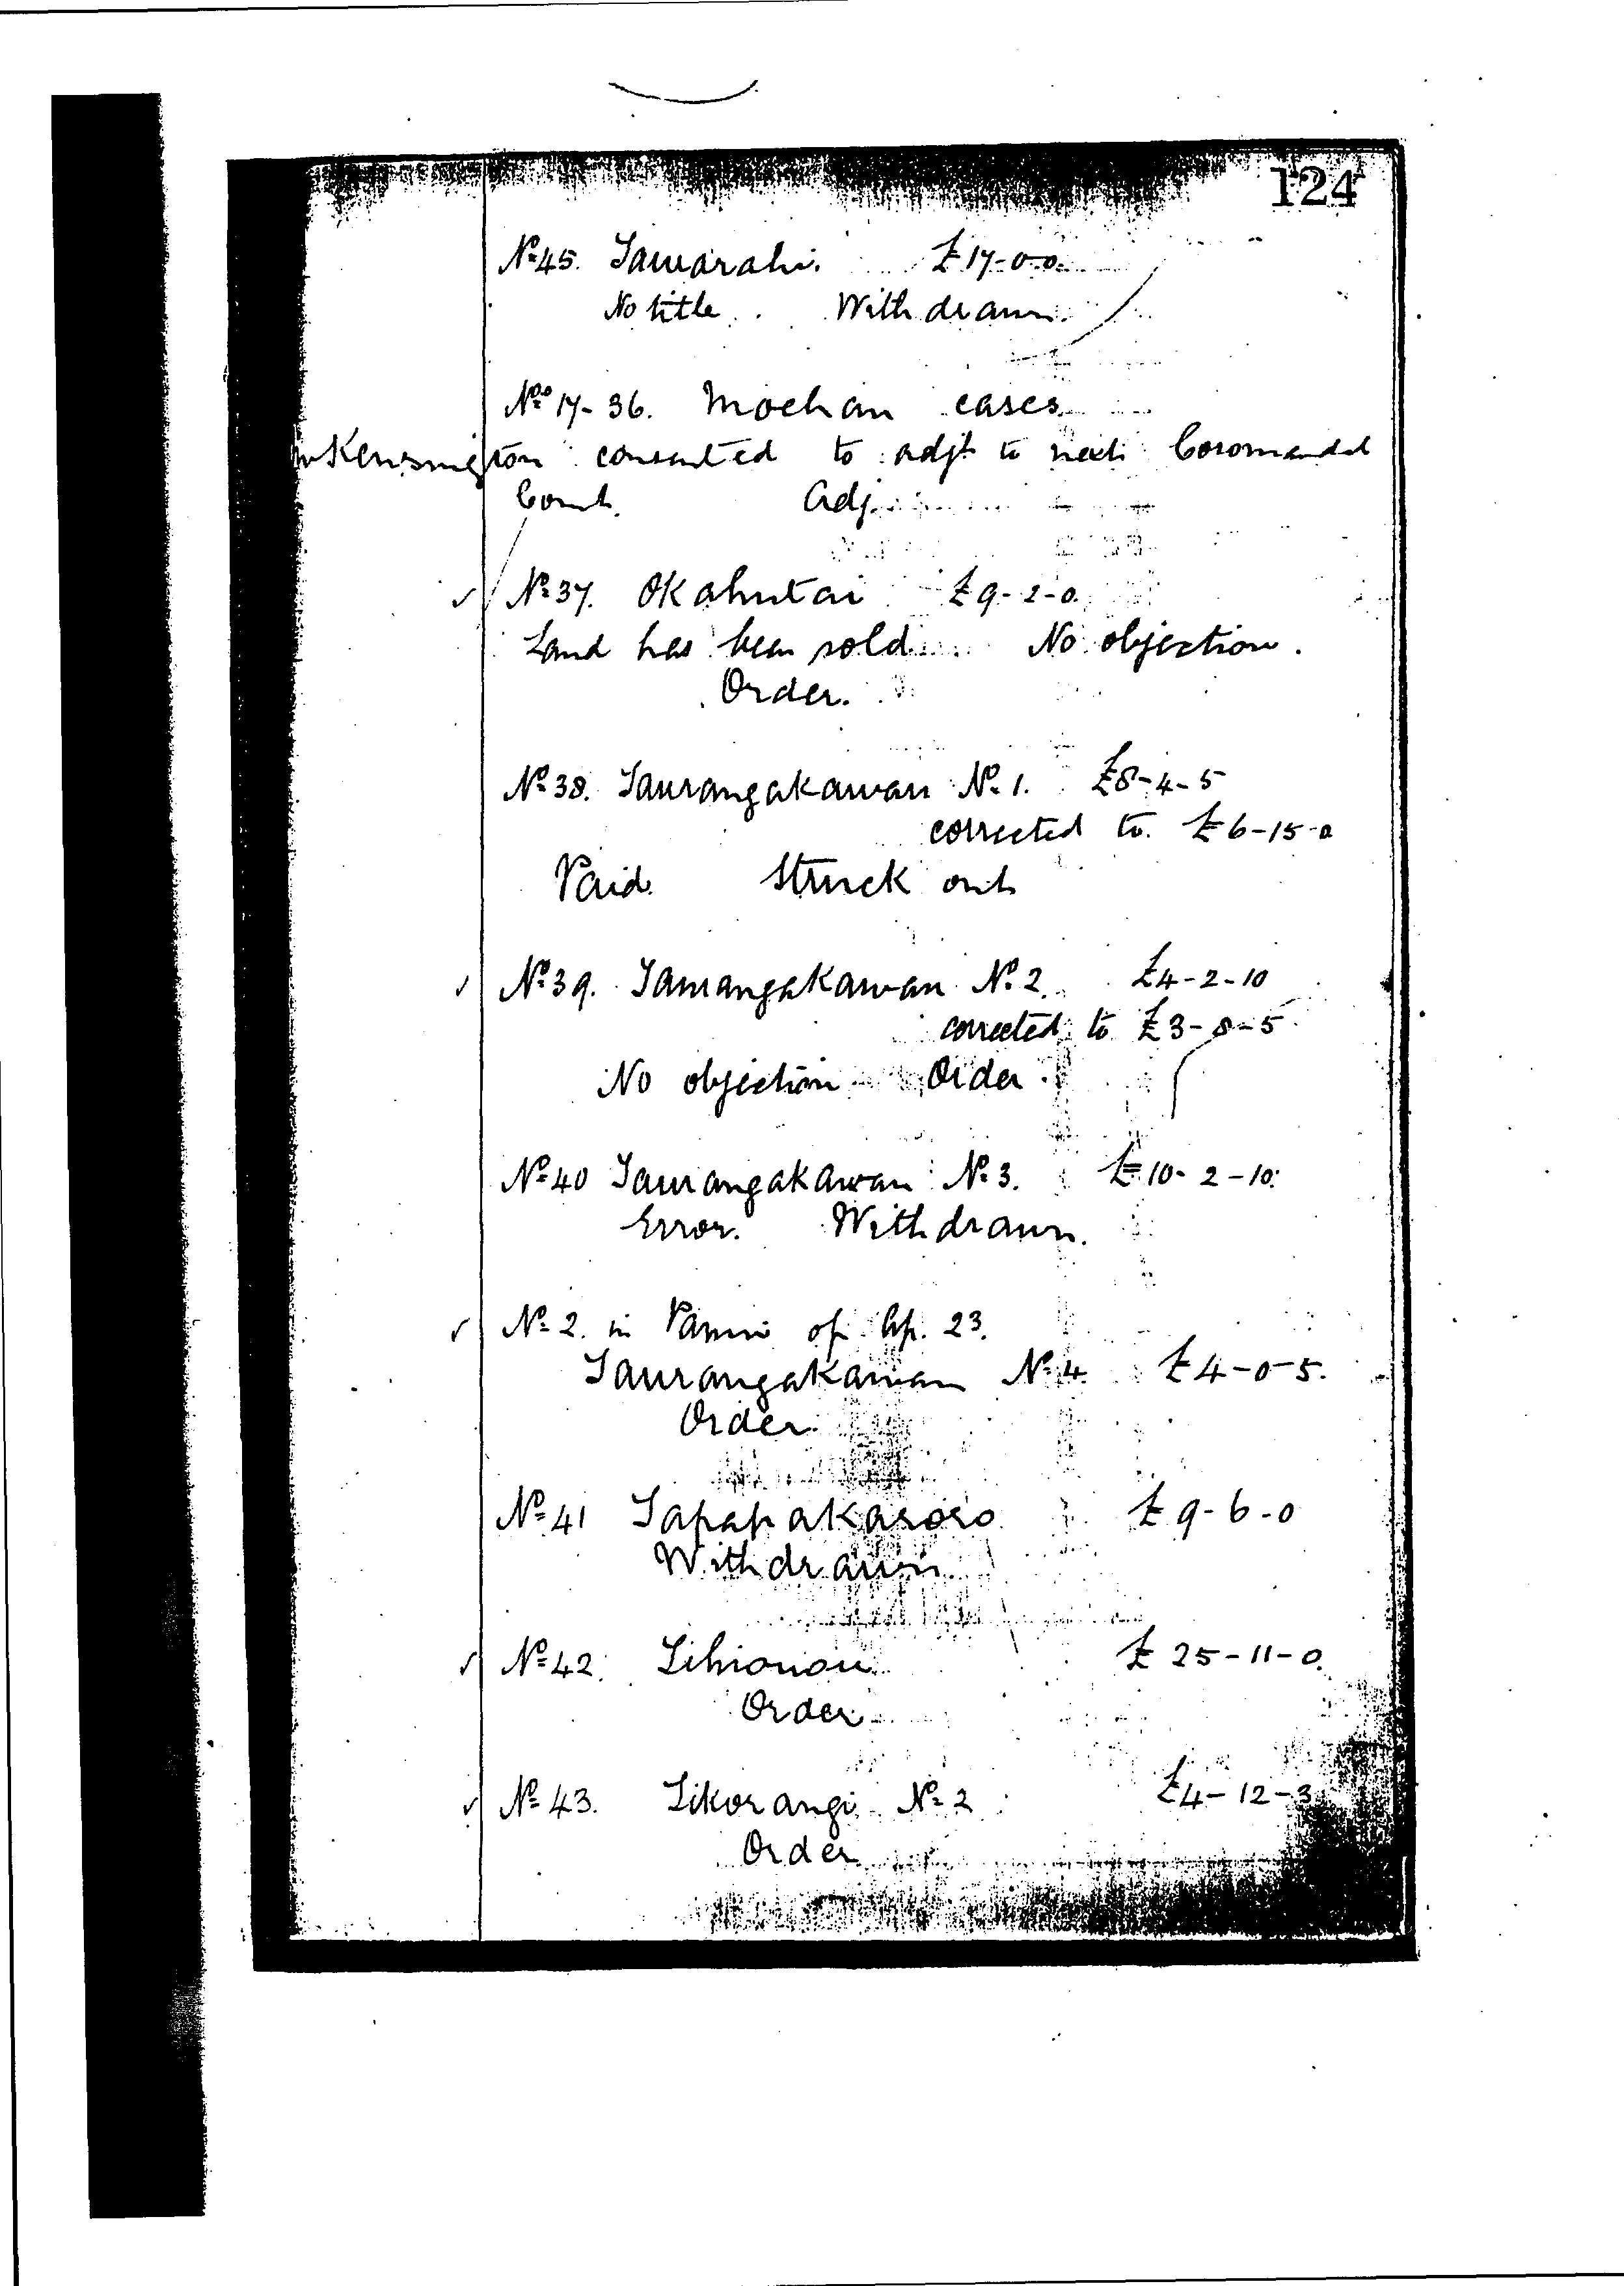 124
No 45. Tawarahi. £17-0-0.
No title. Withdrawn.
Nos 17-36. Moehau cases
Mr Kensington consented to adjt to next Coromandel
Court. Adj.
✓ No 37. Okahutai £9-2-0.
Land has been sold. No objection.
Order.
No 38. Taurangakawau No 1. £8-4-5
corrected to. £6-15-0
Paid. Struck out
✓ No 39. Taurangakawau No 2. £4-2-10
corrected to £3-8-5
No objection Order.
No 40 Taurangakawau No 3. £10-2-10.
Error. Withdrawn.
✓ No 2. in Panui of Ap. 23.
Taurangakawau No 4. £4-0-5.
Order.
No 41 Tapapakaroro £9-6-0
Withdrawn.
✓ No 42. Tihiouou £25-11-0.
Order
✓ No 43. Tikorangi No 2 £4-12-3
Order